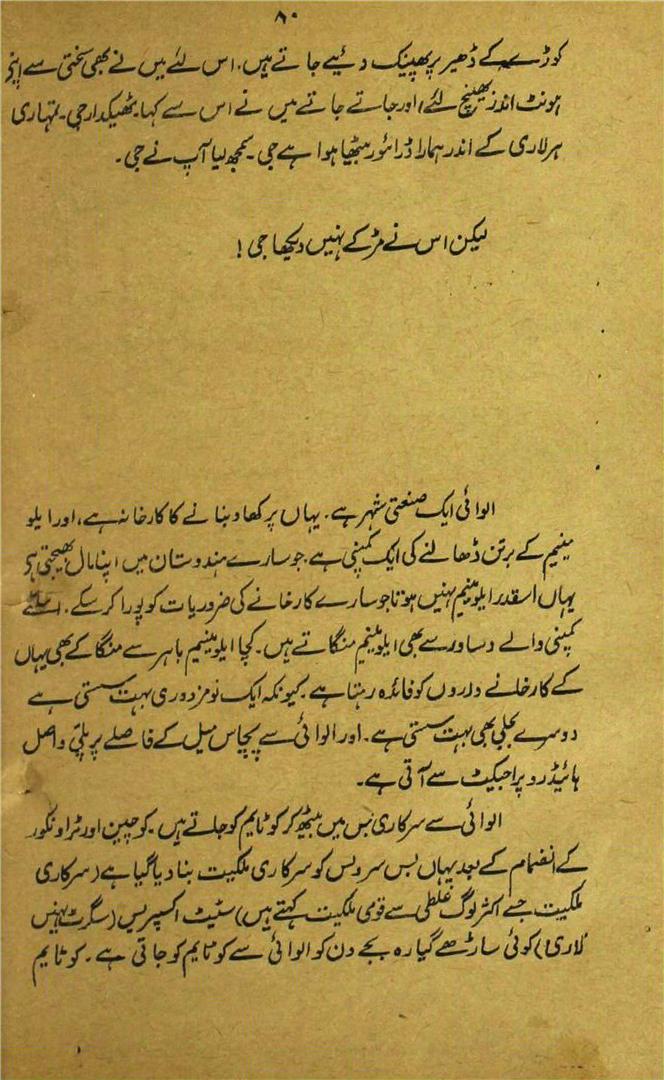 ۸۰
کوڑے کے ڈھیر پر پھینک دئیے جاتے ہیں۔ اس لئے میں نے بھی سختی سے اپنے
ہونٹ اندر بھینچ لئے، اور جاتے جاتے میں نے اس سے کہا۔ ٹھیکدارجی۔ تمہاری
ہر لاری کے اندر ہمارا ڈرائور بیٹھا ہوا ہے جی۔ سمجھ لیا آپ نے جی۔
لیکن اس نے مڑ کے نہیں دیکھا جی!
الوائی ایک صنعتی شہر ہے۔ یہاں پر کھاد بنانے کا کارخانہ ہے، اور ایلو
مینیم کے برتن ڈھالنے کی ایک کمپنی ہے۔ جو سارے ہندوستان میں اپنا مال بھیجتی ہے
یہاں اسقدر ایلومینیم نہیں ہوتا جو سارے کارخانے کی ضروریات کو پورا کر سکے۔ اسلئے
کمپنی والے دساور سے بھی ایلومینیم منگاتے ہیں۔ کچا ایلومینیم باہر سے منگا کے بھی یہاں
کے کارخانے داروں کو فائدہ رہتا ہے۔ کیونکہ ایک تو مزدوری بہت سستی ہے
دوسرے بجلی بھی بہت سستی ہے۔ اور الوائی سے پچاس میل کے فاصلے پر پلی واصل
ہائیڈرو پراجیکٹ سے آتی ہے۔
الوائی سے سرکاری بس میں بیٹھ کر کوٹایم کو جاتے ہیں۔ کوچین اور ٹراونکور
کے انضمام کے بعد یہاں بس سروس کو سرکاری ملکیت بنا دیا گیا ہے (سرکاری
ملکیت جسے اکثر لوگ غلطی سے قومی ملکیت کہتے ہیں) سٹیٹ اکسپریس (سگرٹ نہیں
لاری) کوئی ساڑھے گیارہ بجے دن کو الوائی سے کوٹایم کو جاتی ہے۔ کوٹایم